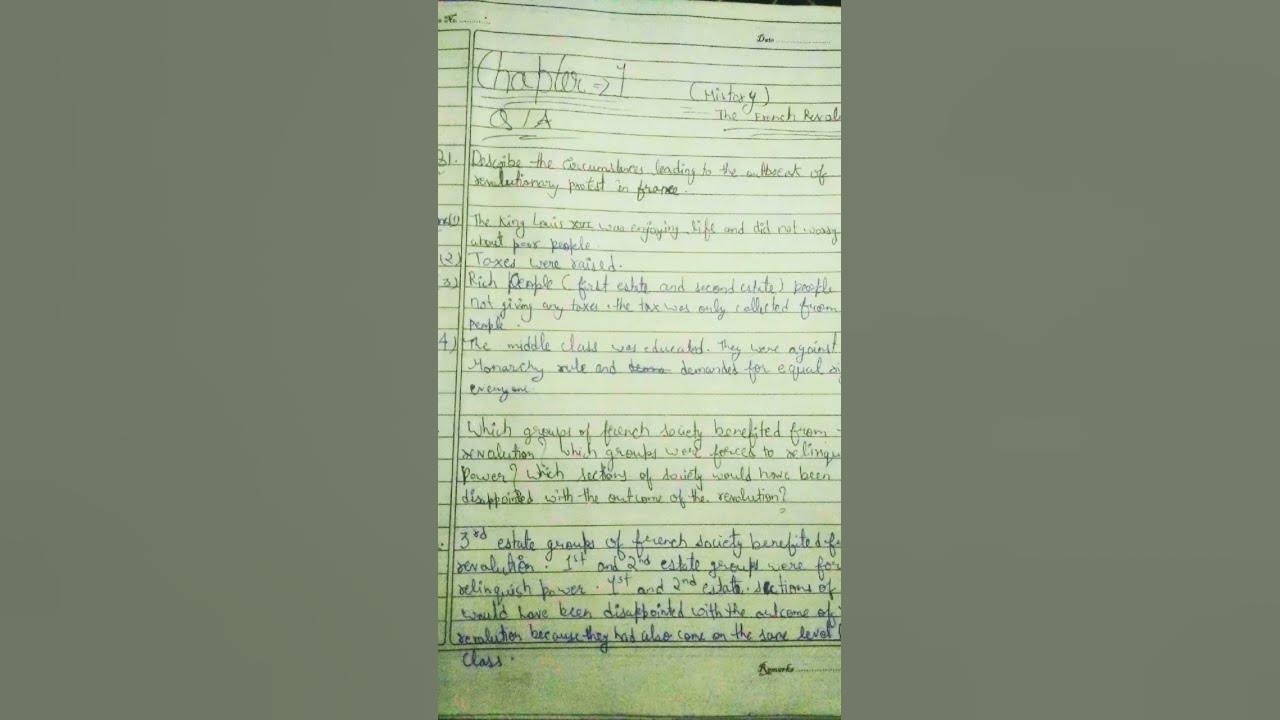 Date
Chapter => 1
(History)
The French Revol
Q/A
Q1. Describe the circumstances leading to the outbreak of
revolutionary protest in france.
Ans(1) The King Louis XVI was enjoying life and did not worry
about poor people.
(2) Taxes were raised.
3) Rich People (first estate and second estate) people
not giving any taxes. the tax was only collected from
people.
4) The middle class was educated. They were against
Monarchy rule and demanded for equal
everyone.
Which groups of french society benefited from
revolution? which groups were forces to relinqu
Power? Which sections of society would have been
disappointed with the outcome of the revolution?
3rd estate groups of french society benefited f
revolution. 1st and 2nd estate groups were for
relinquish power. 1st and 2nd estate sections of
would have been disappointed with the outcome of
revolution because they had also come on the same level
class.
Remarks